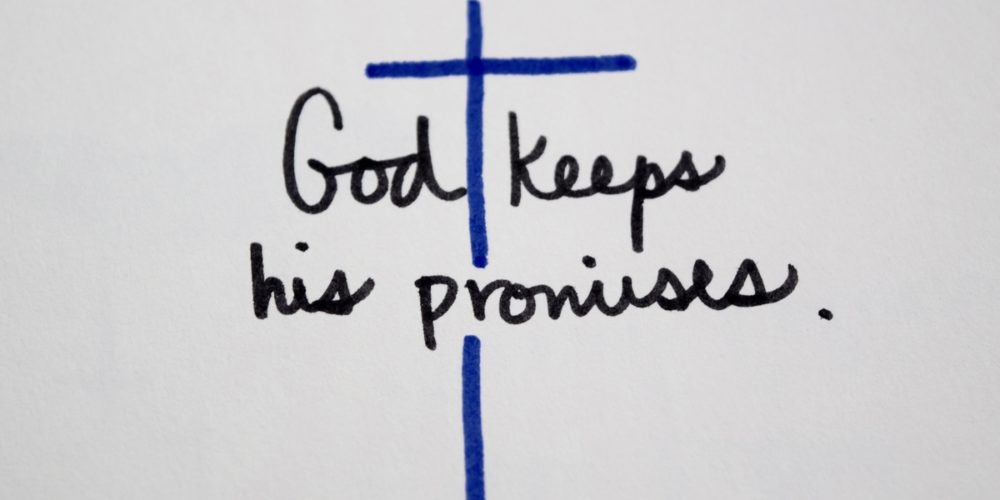 God keeps
his promises.